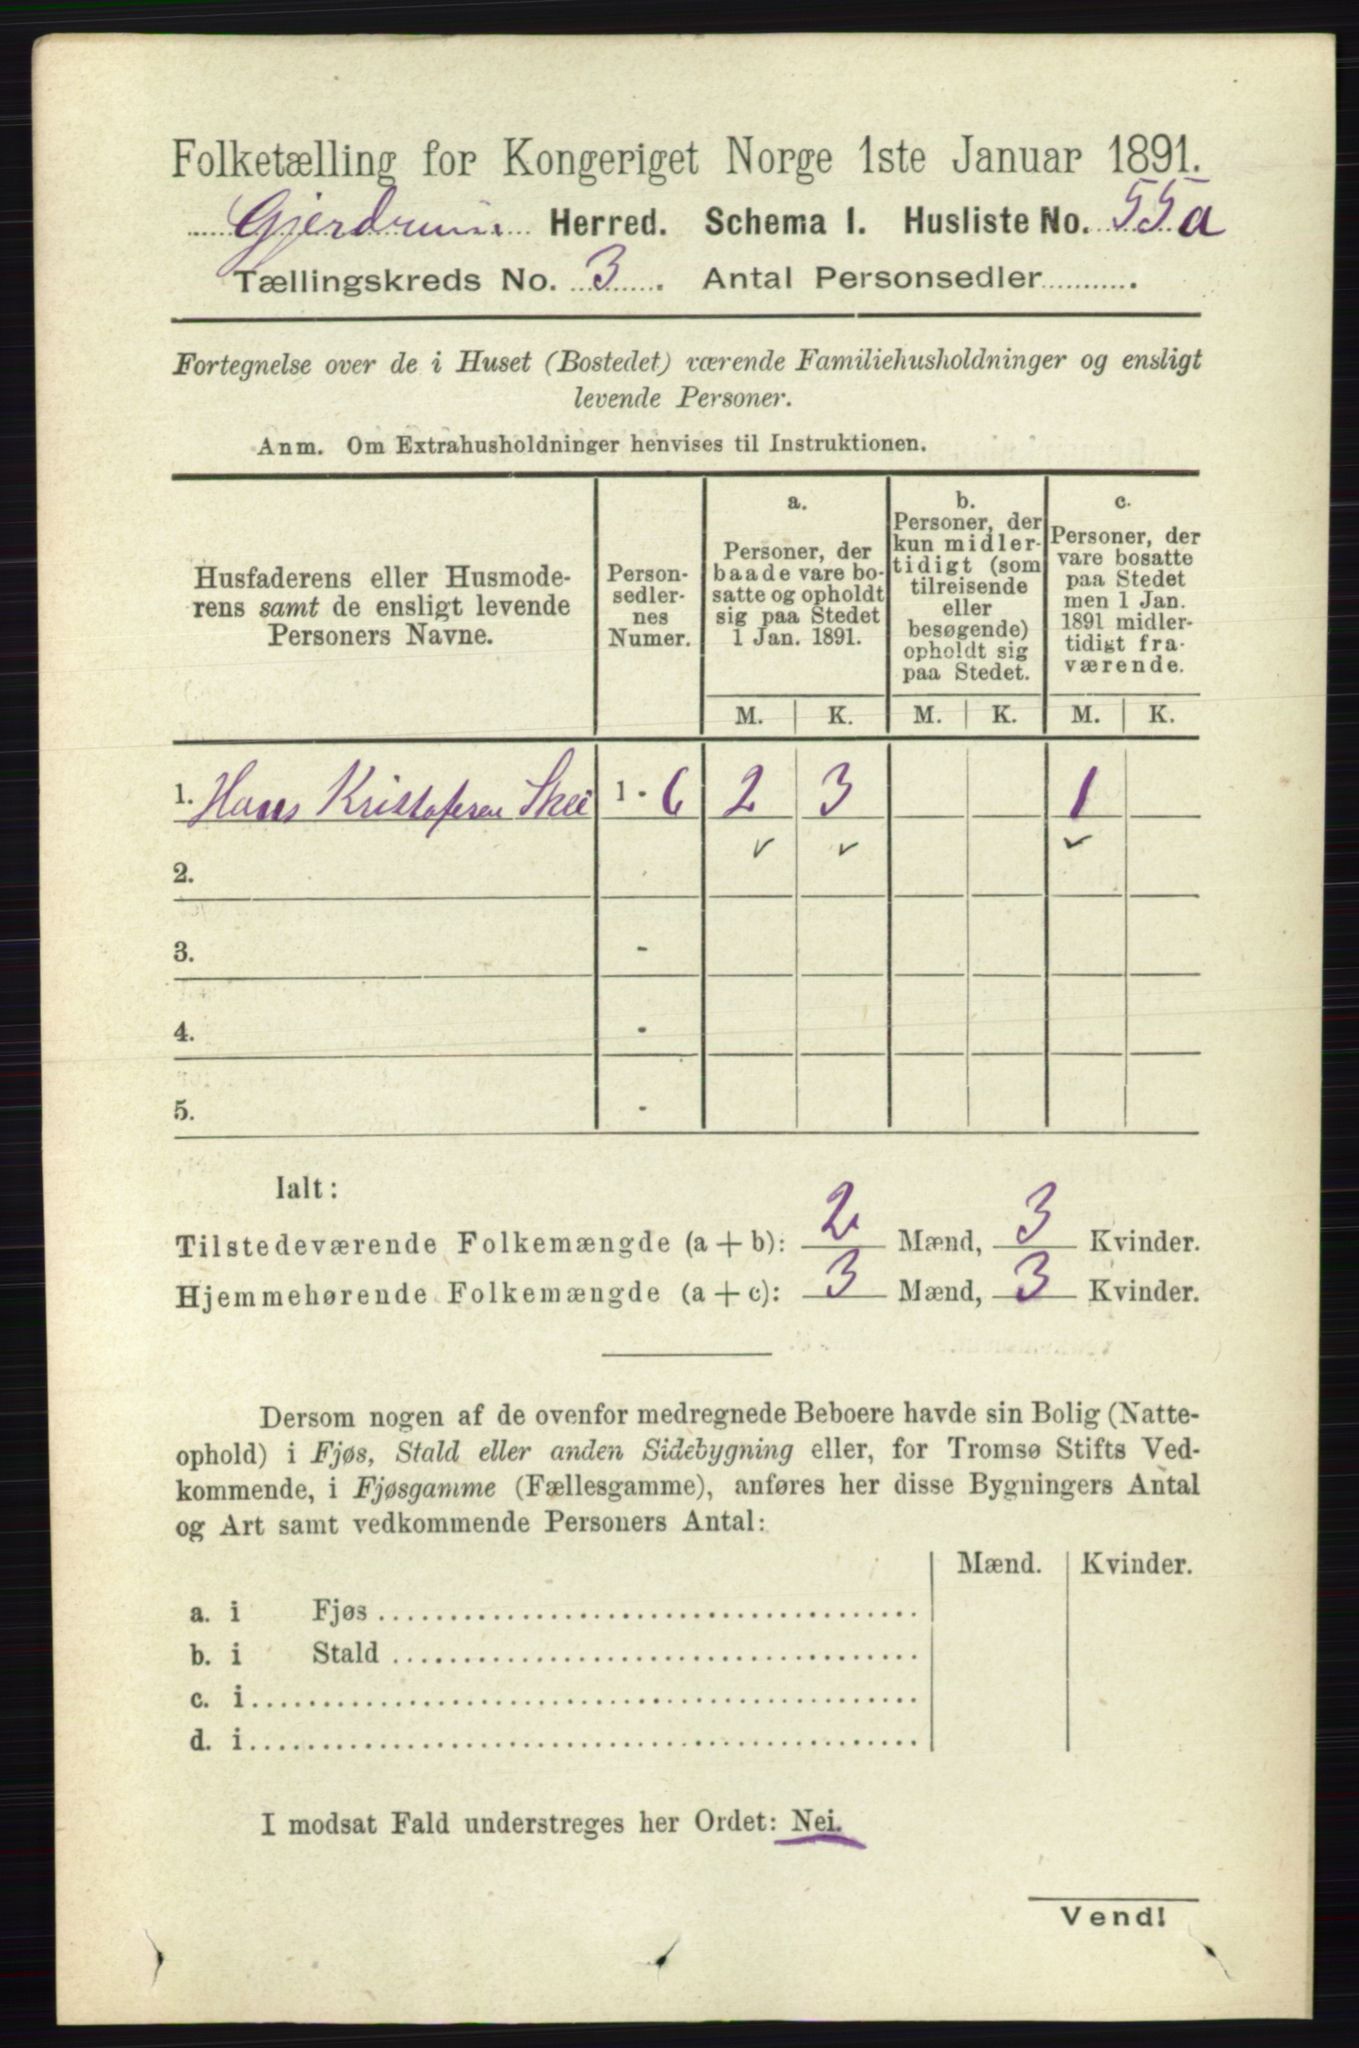 Folketælling for Kongeriget Norge 1ste Januar 1891.
Gjerdrum Herred. Schema I. Husliste No. 55a
Tællingskreds No. 3. Antal Personsedler.
Fortegnelse over de i Huset (Bostedet) værende Familiehusholdninger og ensligt
levende Personer.
Anm. Om Extrahusholdninger henvises til Instruktionen.
Husfaderens eller Husmode-
rens samt de ensligt levende
Personers Navne.
Person-
sedler-
nes
Numer.
a.
Personer, der
baade vare bo-
satte og opholdt
sig paa Stedet
1 Jan. 1891.
b.
Personer, der
kun midler-
tidigt (som
tilreisende
eller
besøgende)
opholdt sig
paa Stedet.
c.
Personer, der
vare bosatte
paa Stedet
men 1 Jan.
1891 midler-
tidigt fra-
værende.
M. K. M. K. M. K.
1. Hans Kristofersen Skei 1 - 6 2 3 1
2.
3. -
4. -
5. -
Ialt:
Tilstedeværende Folkemængde (a + b): 2 Mænd, 3 Kvinder.
Hjemmehørende Folkemængde (a + c): 3 Mænd, 3 Kvinder.
Dersom nogen af de ovenfor medregnede Beboere havde sin Bolig (Natte-
ophold) i Fjøs, Stald eller anden Sidebygning eller, for Tromsø Stifts Ved-
kommende, i Fjøsgamme (Fællesgamme), anføres her disse Bygningers Antal
og Art samt vedkommende Personers Antal:
Mænd. Kvinder.
a. i Fjøs
b. i Stald
c. i
d. i
I modsat Fald understreges her Ordet: Nei.
Vend!